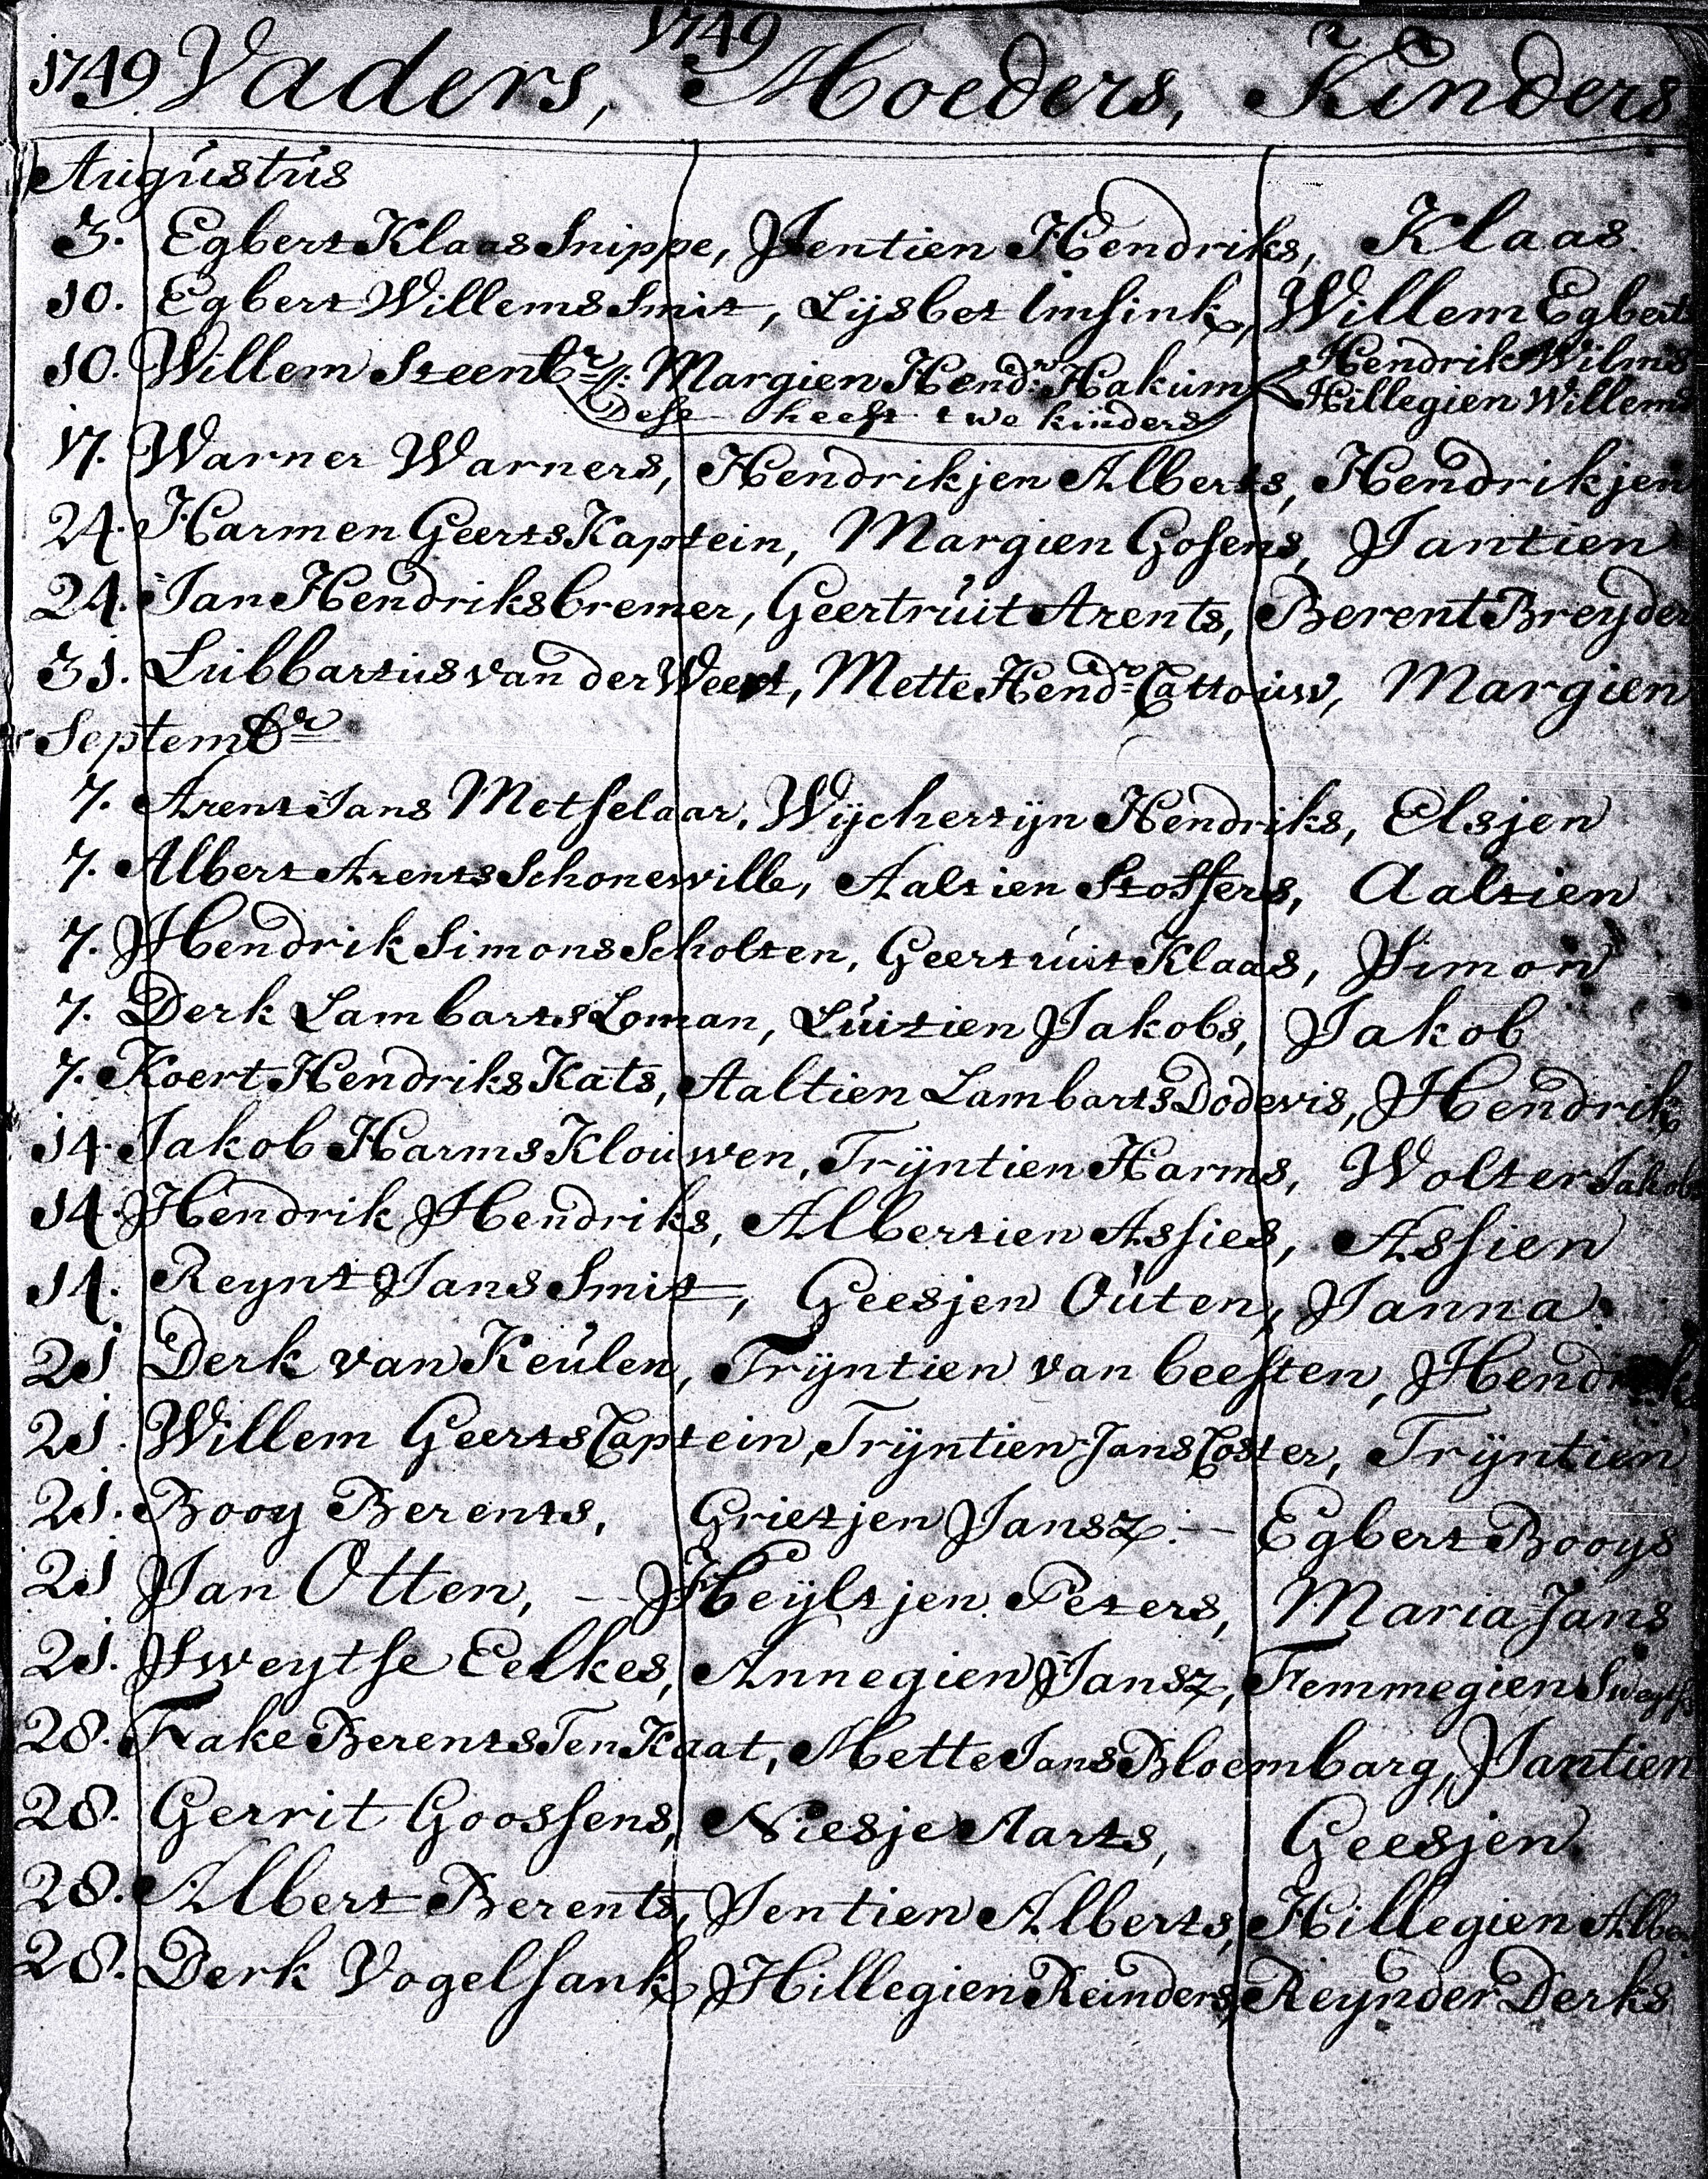 1749
1749 Vaders, Moeders, Kinders
Augustus
3. Egbert Klaas Snippe, Jentien Hendriks, Klaas.
10. Egbert Willems Smit, Lijsbet Imsink, Willem Egberts
10. Willem Steenbr: Margien Hendr: Hakum Hendrik Wilms
Hillegien Willems
Dese heeft twe kinders
17. Warner Warners, Hendrikjen Alberts, Hendrikjen
24. Harmen Geerts Kaptein, Margien Gosens, Jantien
24. Jan Hendriks bremer, Geertruit Arents, Berent Breyder
31. Lubbartus van der Weert, Mette Hendr Cattouw, Margien
Septembr
7. Arent Jans Metselaar, Wijchertijn Hendriks, Elsjen
7. Albert Arents Schoneville, Aaltien Stoffers, Aaltien
7. Hendrik Simons Scholten, Geertruit Klaas, Simon
7. Derk Lambarts Loman, Luitien Jakobs, Jakob
7. Koert Hendriks Kats, Aaltien Lambarts Dodevis, Hendrik
14. Jakob Harms Klouwen, Trijntien Harms, Wolter Jakobs
14. Hendrik Hendriks, Albertien Assies, Assien
14. Reynt Jans Smit, Geesjen Outen, Janna.
21 Derk van Keulen, Trijntien van beesten,
21. Willem Geerts Captein, Trijntien Jans Coster, Trijntien
21. Booy Berents, Grietjen Jansz:— Egbert Booys
21 Jan Otten, — Heyltjen Peters, Maria Jans
21. Sweytse Eelkes, Annegien Jansz, Femmegien
28. Frake Berents Ten Kaat, Mette Jans Bloembarg, Jantien
28. Gerrit Goossens, Niesje Aarts, Geesjen.
28. Albert Berents, Jentien Alberts, Hillegien
28. Derk Vogelsank, Hillegien Reinders, Reynder Derks